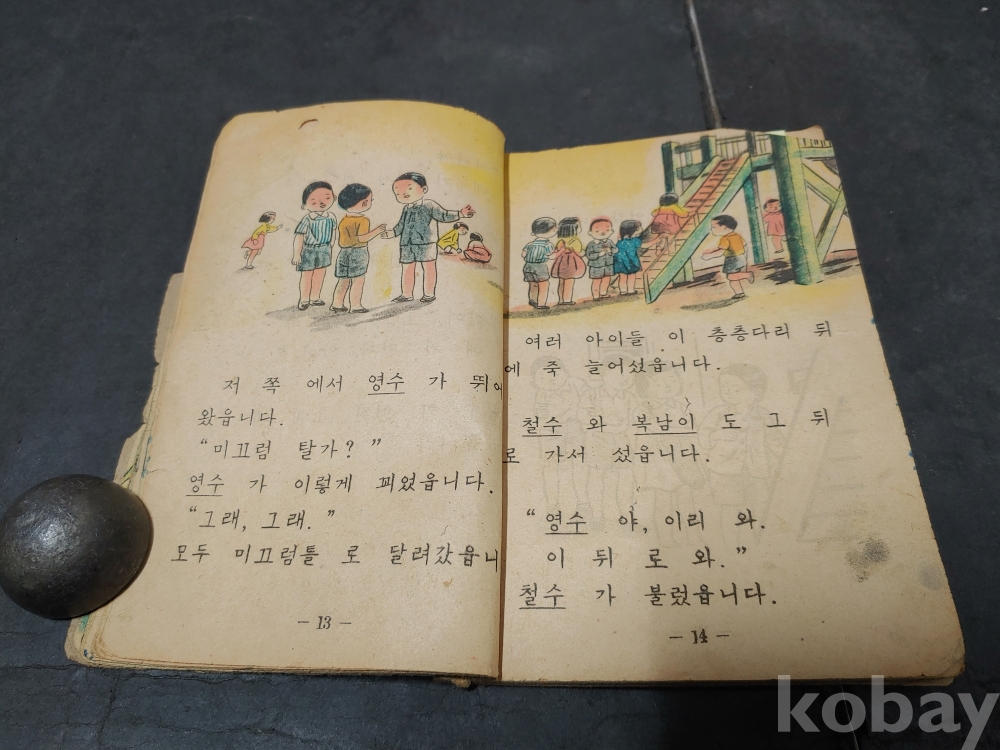 저 쪽 에서 영수 가 뛰어
왔읍니다.
“미끄럼 탈가?”
영수 가 이렇게 꾀었읍니다.
“그래, 그래.”
모두 미끄럼틀 로 달려갔읍니
– 13 –
여러 아이들 이 층층다리 뒤
에 죽 늘어섰읍니다.
철수 와 복남이 도 그 뒤
로 가서 섰읍니다.
“영수 야, 이리 와.
이 뒤 로 와.”
철수 가 불렀읍니다.
– 14 –
kobay